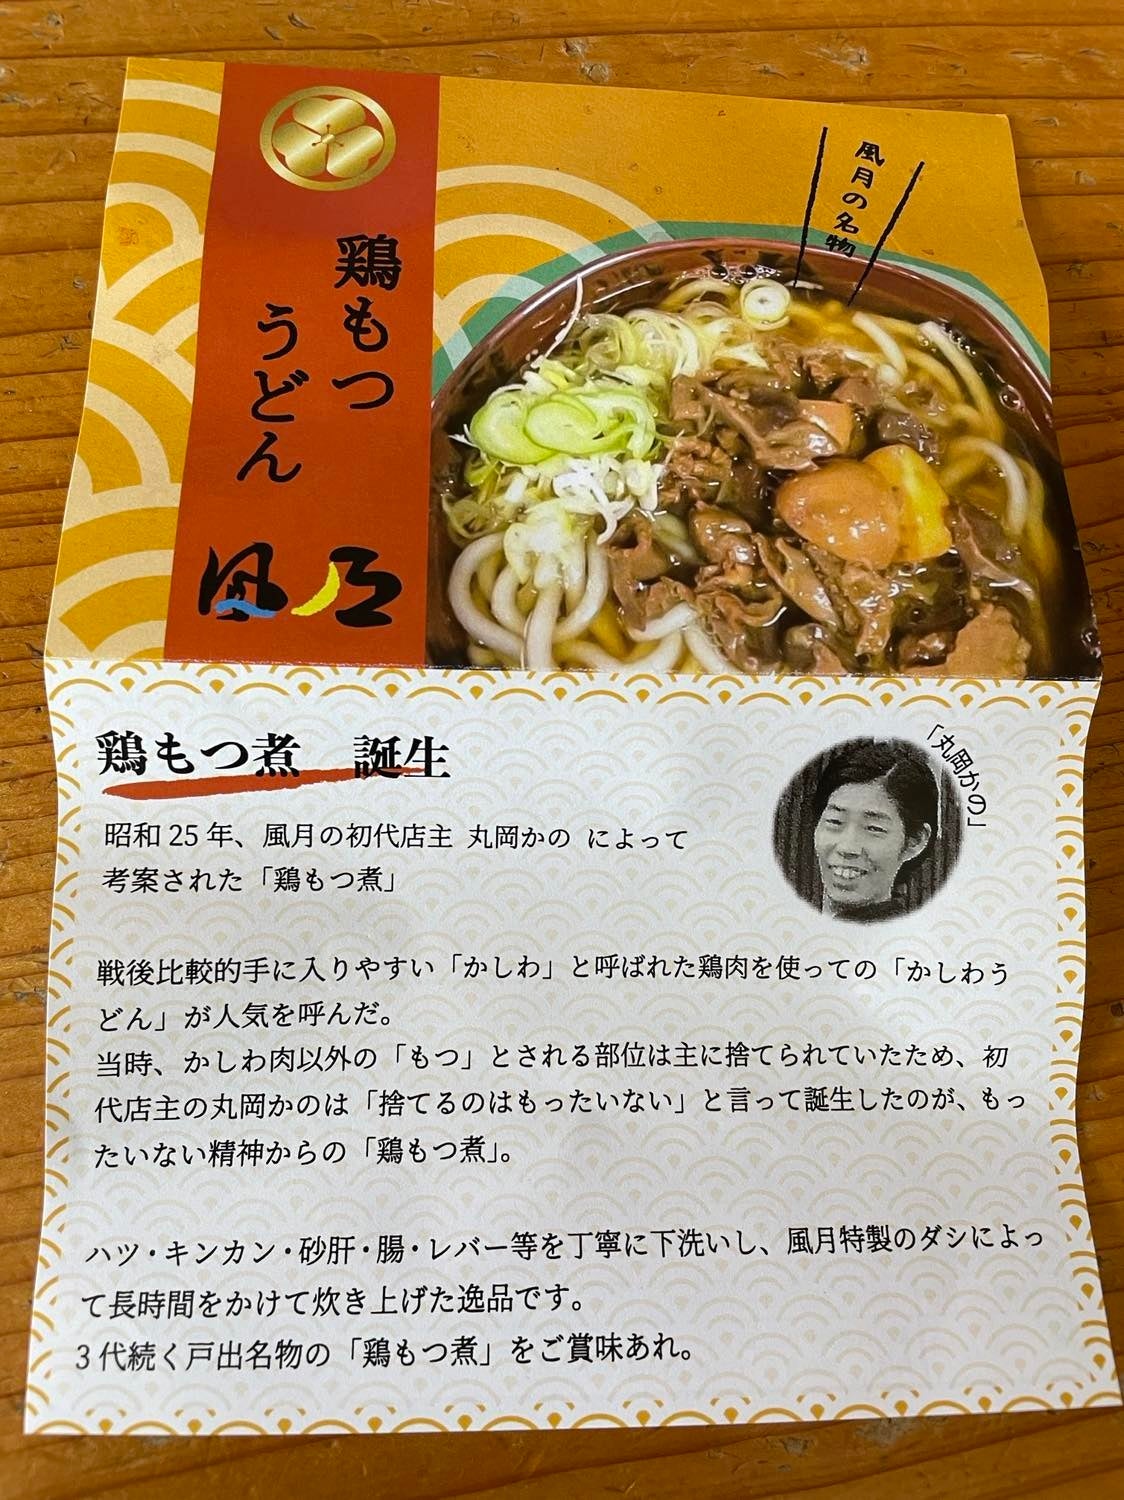 風月の名物
鶏もつ
うどん
風月
鶏もつ煮　誕生
「丸岡かの」
昭和25年、風月の初代店主 丸岡かの によって
考案された「鶏もつ煮」
戦後比較的手に入りやすい「かしわ」と呼ばれた鶏肉を使っての「かしわう
どん」が人気を呼んだ。
当時、かしわ肉以外の「もつ」とされる部位は主に捨てられていたため、初
代店主の丸岡かのは「捨てるのはもったいない」と言って誕生したのが、もっ
たいない精神からの「鶏もつ煮」。
ハツ・キンカン・砂肝・腸・レバー等を丁寧に下洗いし、風月特製のダシによっ
て長時間をかけて炊き上げた逸品です。
3代続く戸出名物の「鶏もつ煮」をご賞味あれ。